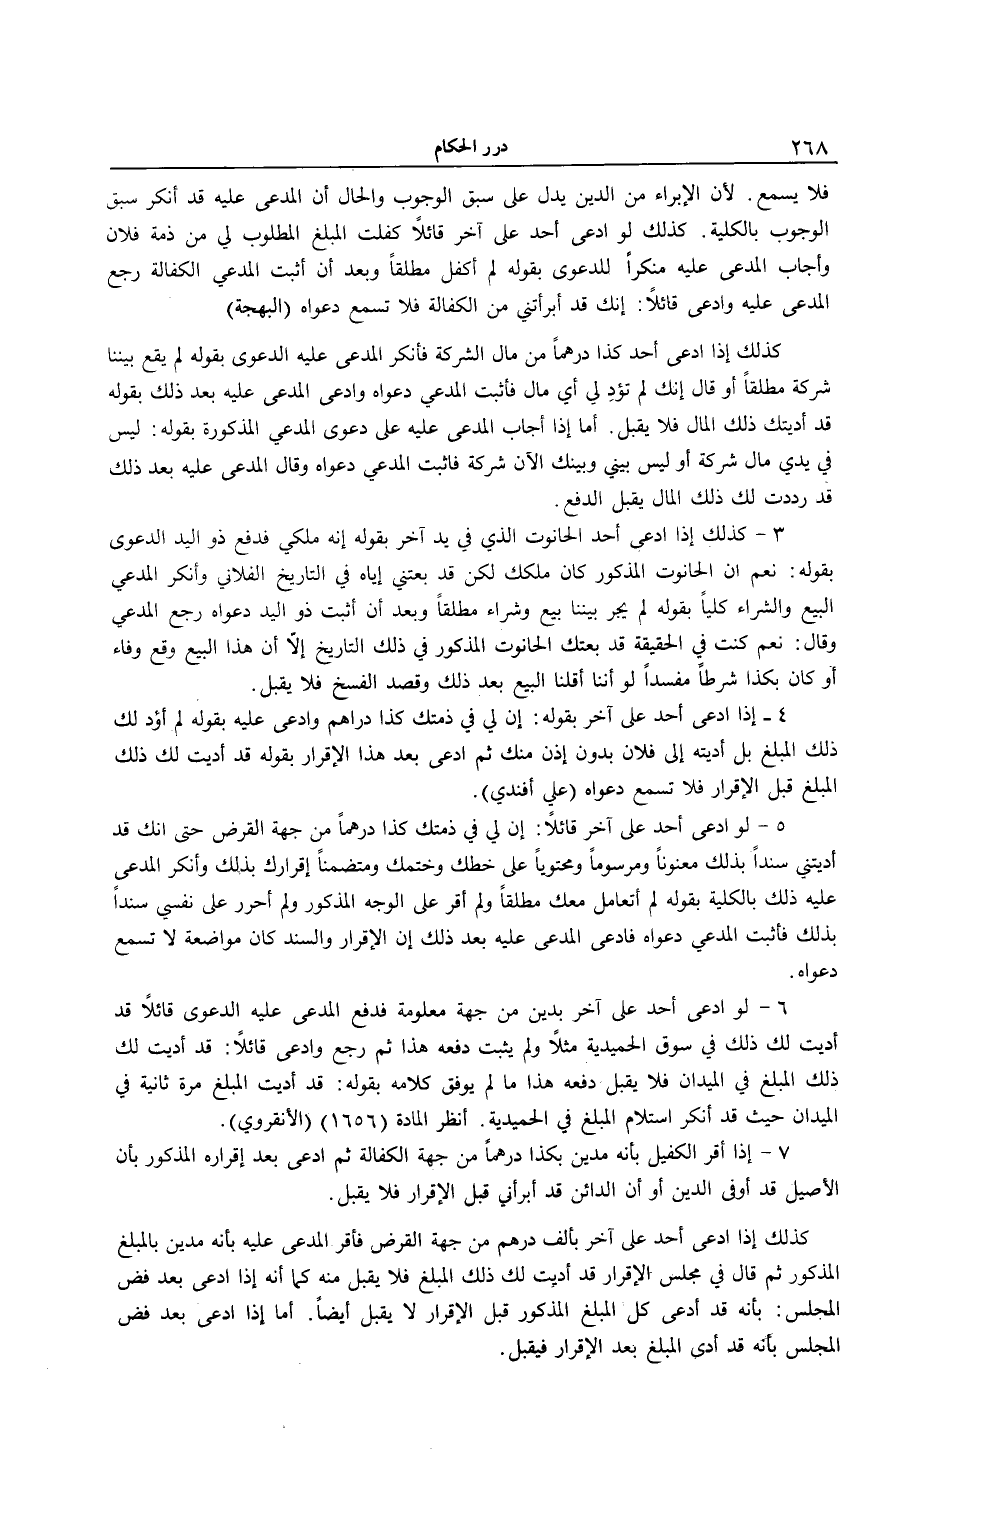 ٢٦٨ درر الحكام
فلا يسمع. لأن الإبراء من الدين يدل على سبق الوجوب والحال أن المدعى عليه قد أنكر سبق
الوجوب بالكلية. كذلك لو ادعى أحد على آخر قائلًا كفلت المبلغ المطلوب لي من ذمة فلان
وأجاب المدعى عليه منكراً للدعوى بقوله لم أكفل مطلقاً وبعد أن أثبت المدعي الكفالة رجع
المدعى عليه وادعى قائلًا: إنك قد أبرأتني من الكفالة فلا تسمع دعواه (البهجة)
كذلك إذا ادعى أحد كذا درهماً من مال الشركة فأنكر المدعى عليه الدعوى بقوله لم يقع بيننا
شركة مطلقاً أو قال إنك لم تؤدِ لي أي مال فأثبت المدعي دعواه وادعى المدعى عليه بعد ذلك بقوله
قد أديتك ذلك المال فلا يقبل. أما إذا أجاب المدعى عليه على دعوى المدعي المذكورة بقوله: ليس
في يدي مال شركة أو ليس بيني وبينك الآن شركة فاثبت المدعي دعواه وقال المدعى عليه بعد ذلك
قد رددت لك ذلك المال يقبل الدفع.
٣ - كذلك إذا ادعى أحد الحانوت الذي في يد آخر بقوله إنه ملكي فدفع ذو اليد الدعوى
بقوله: نعم ان الحانوت المذكور كان ملكك لكن قد بعتني إياه في التاريخ الفلاني وأنكر المدعي
البيع والشراء كلياً بقوله لم يجر بيننا بيع وشراء مطلقاً وبعد أن أثبت ذو اليد دعواه رجع المدعي
وقال: نعم كنت في الحقيقة قد بعتك الحانوت المذكور في ذلك التاريخ إلّا أن هذا البيع وقع وفاء
أو كان بكذا شرطاً مفسداً لو أننا أقلنا البيع بعد ذلك وقصد الفسخ فلا يقبل.
٤ - إذا ادعى أحد على آخر بقوله: إن لي في ذمتك كذا دراهم وادعى عليه بقوله لم أؤد لك
ذلك المبلغ بل أديته إلى فلان بدون إذن منك ثم ادعى بعد هذا الإقرار بقوله قد أديت لك ذلك
المبلغ قبل الإقرار فلا تسمع دعواه (علي أفندي).
٥ - لو ادعى أحد على آخر قائلًا: إن لي في ذمتك كذا درهماً من جهة القرض حتى انك قد
أديتني سنداً بذلك معنوناً ومرسوماً ومحتوياً على خطك وختمك ومتضمناً إقرارك بذلك وأنكر المدعى
عليه ذلك بالكلية بقوله لم أتعامل معك مطلقاً ولم أقر على الوجه المذكور ولم أحرر على نفسي سنداً
بذلك فأثبت المدعي دعواه فادعى المدعى عليه بعد ذلك إن الإقرار والسند كان مواضعة لا تسمع
دعواه.
٦ - لو ادعى أحد على آخر بدين من جهة معلومة فدفع المدعى عليه الدعوى قائلًا قد
أديت لك ذلك في سوق الحميدية مثلًا ولم يثبت دفعه هذا ثم رجع وادعى قائلًا: قد أديت لك
ذلك المبلغ في الميدان فلا يقبل دفعه هذا ما لم يوفق كلامه بقوله: قد أديت المبلغ مرة ثانية في
الميدان حيث قد أنكر استلام المبلغ في الحميدية. أنظر المادة (١٦٥٦) (الأنقروي).
٧ - إذا أقر الكفيل بأنه مدين بكذا درهماً من جهة الكفالة ثم ادعى بعد إقراره المذكور بأن
الأصيل قد أوفى الدين أو أن الدائن قد أبرأني قبل الإقرار فلا يقبل.
كذلك إذا ادعى أحد على آخر بألف درهم من جهة القرض فأقر المدعى عليه بأنه مدين بالمبلغ
المذكور ثم قال في مجلس الإقرار قد أديت لك ذلك المبلغ فلا يقبل منه كما أنه إذا ادعى بعد فض
المجلس: بأنه قد أدعى كل المبلغ المذكور قبل الإقرار لا يقبل أيضاً. أما إذا ادعى بعد فض
المجلس بأنه قد أدى المبلغ بعد الإقرار فيقبل.